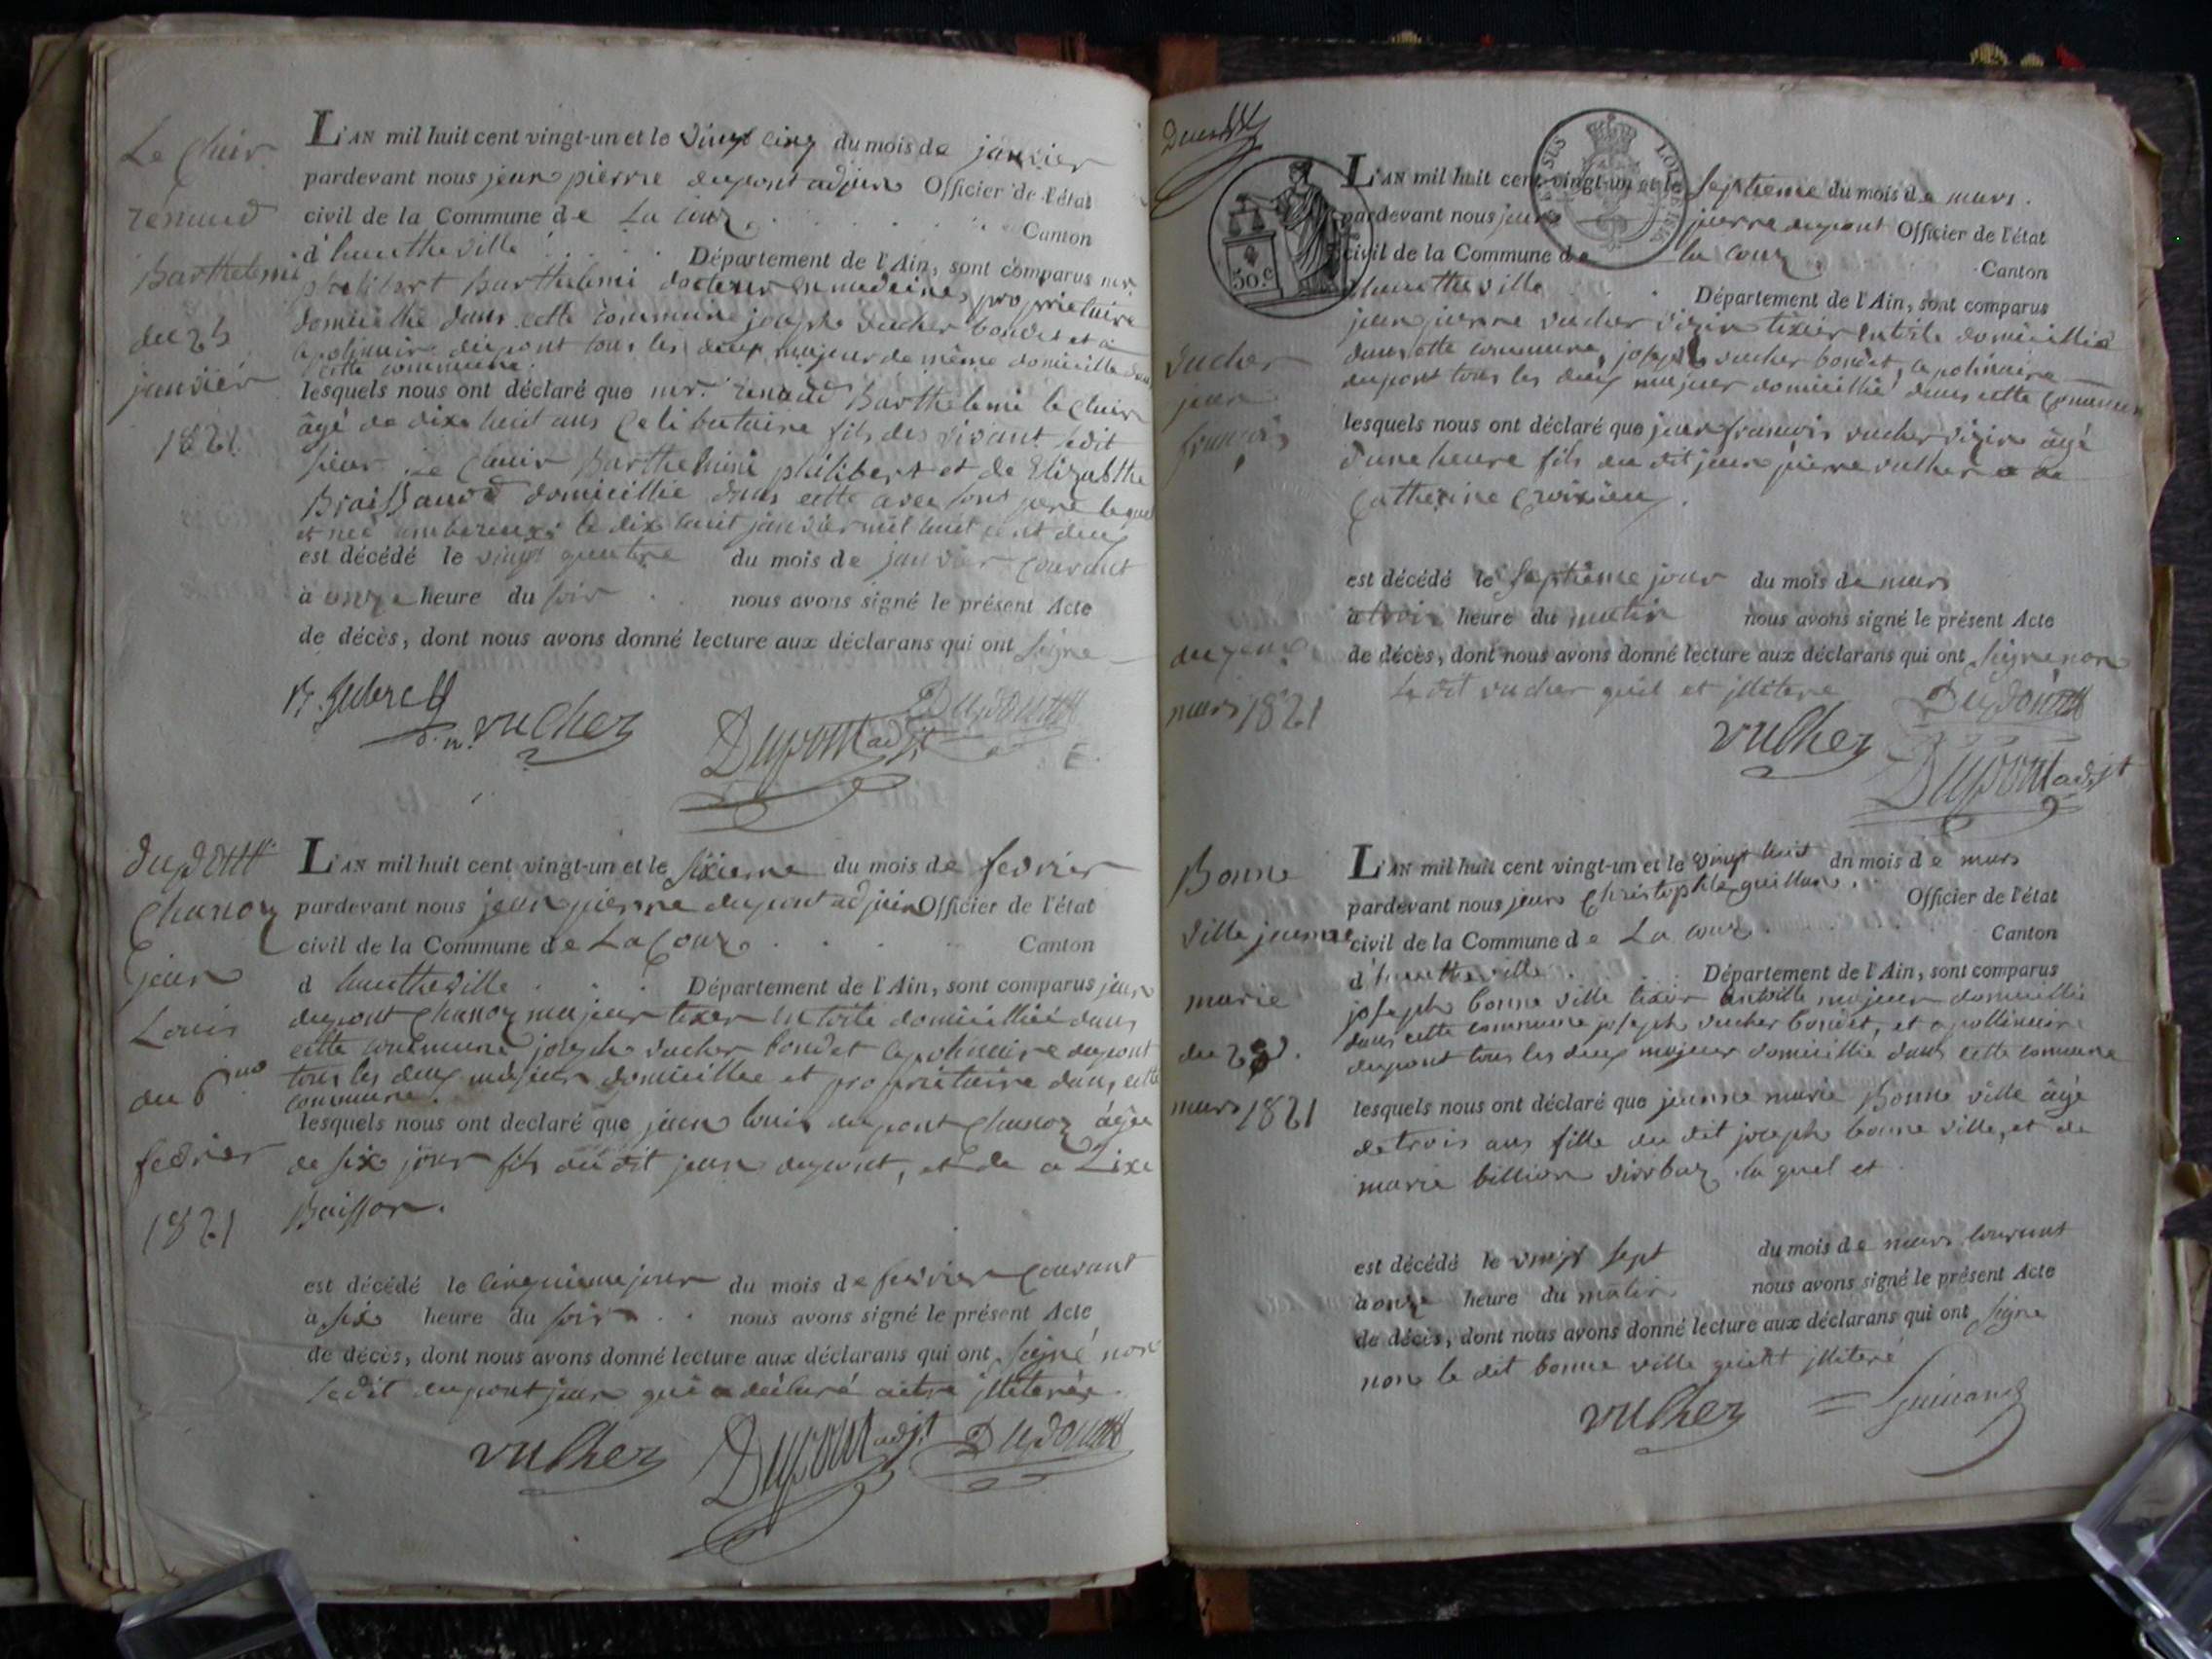 Le Clair
renaud
Barthelemi
du 25
janvier
1821
L'AN mil huit cent vingt-un et le vingt cinq du mois de janvier
pardevant nous jean pierre dupont adjoin Officier de l'état
civil de la Commune de La Couz Canton
d'hautheville Département de l'Ain, sont comparus mr.
philibert Barthelemi docteur en medeine, proprietaire
domicillié dans cette commune joseph vucher bondet et a
apolinair dupont tous les deux majeur de même domicille dans
cette commune.
lesquels nous ont déclaré que mr. renaud Barthelemi le Clair
âgé de dixe huit ans Celibutaire fils des vivant sedit
sieur Le Clair Barthelmi philibert et de Elizabthe
Braissaud domicillié dans cette avec sons pere lequel
et neé le dix huit janvier mil huit cent deux
est décédé le vingt quatre du mois de janvier courant
à onze heure du soir nous avons signé le présent Acte
de décès, dont nous avons donné lecture aux déclarans qui ont signe
vucher
Dupont adjt
Dupont
dupont
Chanoz
jean
Louis
du 6me
fevrier
1821
L'AN mil huit cent vingt-un et le sixieme du mois de fevrier
pardevant nous jean pierre dupont adjoin Officier de l'état
civil de la Commune de La Couz Canton
d hautheville Département de l'Ain, sont comparus jean
dupont Chanoz majeur tixer en toile domicillié dans
cette commune joseph vucher bondet apolinaire dupont
tous les deux majeur domicillee et proprietaire dans cette
commune.
lesquels nous ont declaré que jean louis dupont Chanoz âgée
de six jour fils du dit jean dupont, et de a Lixe
Baisson.
est décédé le cinquieme jour du mois de fevrier courant
à six heure du soir nous avons signé le présent Acte
de décès, dont nous avons donné lecture aux déclarans qui ont signé non
ledit dupont jean qui a déclaré aitre illiterée.
vucher Dupont adjt Dupont
50.c
vucher
jean
francois
du 7eme
mars 1821
L'AN mil huit cent vingt-un et le septieme du mois de mars.
pardevant nous jean pierre dupont Officier de l'état
civil de la Commune de la Couz Canton
d'hautheville Département de l'Ain, sont comparus
jean pierre vucher vizin tixier en toile domicillié
dans cette commune, joseph vucher bondet, apolinaire
dupont tous les deux majeur domicillié dans cette commune
lesquels nous ont déclaré que jean francois vucher vizin âgé
d'une heure fils du dit jean pierre vucher de
Catherine Croixieu.
est décédé le septième jour du mois de mars
à trois heure du matin nous avons signé le présent Acte
de décès, dont nous avons donné lecture aux déclarans qui ont signe non
Le dit vucher quil et illitere
vucher Dupont
Dupont adjt
Bonne
ville jeanne
marie
du 28.
mars 1821
L'AN mil huit cent vingt-un et le vingt huit du mois de mars
pardevant nous jean Christophle guillan. Officier de l'état
civil de la Commune de La Couz Canton
d'hautheville Département de l'Ain, sont comparus
joseph bonne ville tixier en toille majeur domicillié
dans cette commune joseph vucher bondet, et apollinaire
dupont tous les deux majeur domicillié dans cette commune
lesquels nous ont déclaré que jeanne marie Bonne ville âgé
de trois ans fille du dit joseph bonne ville, et de
marie billion la quel et
est décédé le vingt sept du mois de mars courant
à onze heure du matin nous avons signé le présent Acte
de décès, dont nous avons donné lecture aux déclarans qui ont signe
non le dit bonne ville qui et illiteré
vucher